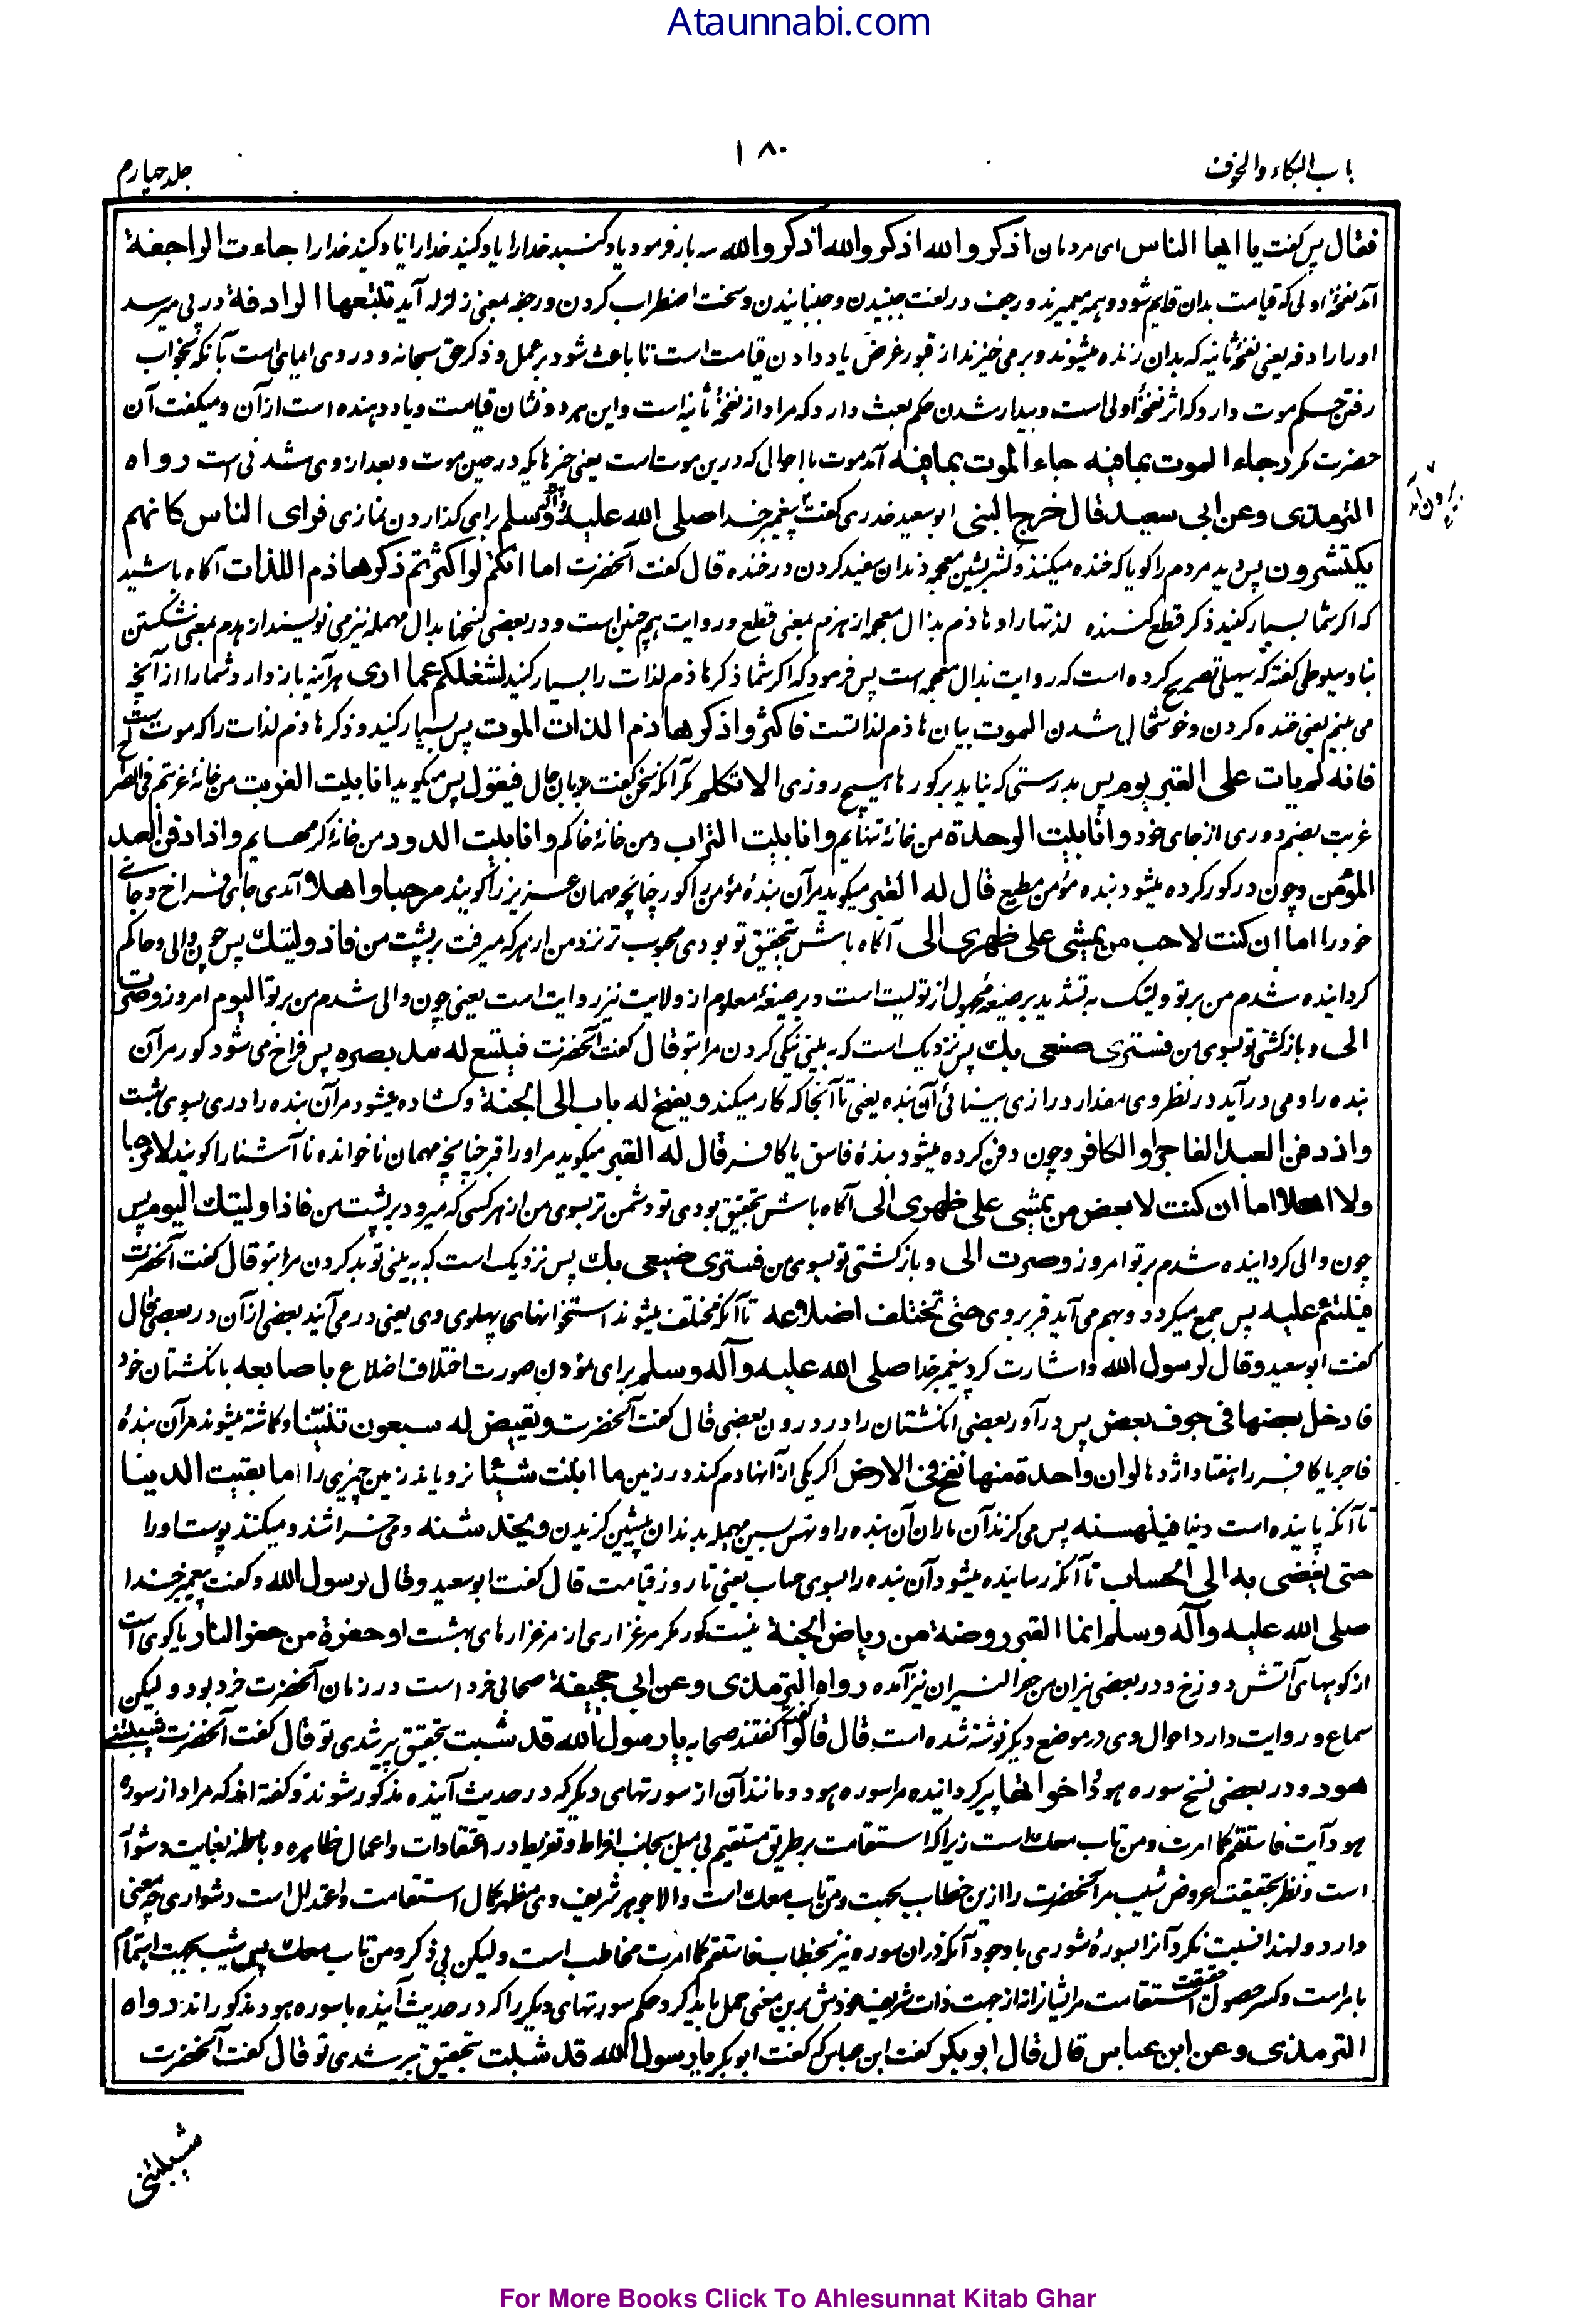 Ataunnabi.com
باب البکاء والخوف
۱۸۰
جلد چهارم
فقال پس گفت یا ایها الناس ای مردمان اذکروا الله اذکروا الله اذکروا الله سه بار فرمود یاد کنید خدا را یاد کنید خدا را یاد کنید خدا را جاءت الراجفة
آمد نفخهٔ اولی که قیامت بدان قایم شود و همه میمیرند و رجف در لغت جنبیدن و جنبانیدن و سخت اضطراب کردن و رجفه بمعنی زلزله آید تتبعها الرادفة در پی میرسد
او را رادفه یعنی نفخهٔ ثانیه که بدان زنده میشوند و برمی‌خیزند از قبور غرض یاد دادن قیامت است تا باعث شود بر عمل و ذکر حق سبحانه و در وی ایمای است بآنکه بخواب
رفتن حکم موت دارد که اثر نفخهٔ اولی است و بیدار شدن حکم بعث دارد که مراد از نفخهٔ ثانیه است و این هر دو نشان قیامت و یاد دهنده است از آن و میگفت آن
حضرت مکرر جاء الموت بما فیه جاء الموت بما فیه آمد موت با احوالی که درین موت است یعنی چیزهایکه در حین موت و بعد از وی شدنی است رواه
الترمذی وعن ابی سعید قال خرج النبی ابو سعید خدری گفت پیغمبر خدا صلی الله علیه وآله وسلم برای گذاردن نمازی فرای الناس کانهم
بیرون آمد
یکتشرون پس دید مردم را گویا که خنده میکنند و کشر بشین معجمه دندان سفید کردن در خنده قال گفت آنحضرت اما انکم لو اکثرتم ذکر هاذم اللذات آگاه باشید
که اگر شما بسیار کنید ذکر قطع کننده لذتها را و هاذم بذال معجمه از هزم بمعنی قطع و روایت همچنین است و در بعضی نسخها بدال مهمله نیز می نویسند از هدم بمعنی شکستن
بنا و سیوطی گفته که سهیلی تصریح کرده است که روایت بذال معجمه است پس فرمود که اگر شما ذکر هاذم لذات را بسیار کنید لشغلکم عما اری هرآئنه باز دارد شما را از آنچه
می بینم یعنی خنده کردن و خوشحالی شدن الموت بیان هاذم لذات است فاکثروا ذکر هاذم اللذات الموت پس بسیار کنید ذکر هاذم لذات را که موت است
فانه لم یات علی القبر یوم پس بدرستی که نیاید بر گور ها هیچ روزی الا تکلم مگر آنکه سخن گفت بزبان حال فیقول پس میگوید انا بیت الغربت من خانهٔ غربتم
غربت بضم دوری از جای خود وانا بیت الوحدة من خانهٔ تنهایم وانا بیت التراب ومن خانهٔ خاکم وانا بیت الدود من خانهٔ کرمهایم واذا دفن العبد
المؤمن و چون در گور کرده میشود بنده مؤمن مطیع قال له القبر میگوید مر آن بندهٔ مؤمن را گور چنانچه مهمان عزیز را گویند مرحبا واهلا آمدی جای فراخ و جای
خود را اما ان کنت لاحب من یمشی علی ظهری الی آگاه باش بتحقیق تو بودی محبوب تر نزد من از هر که میرفت بر پشت من فاذ ولیتک پس چون والی و حاکم
گردانیده شدم من بر تو ولیتک به تشدید بر صیغهٔ مجهول از تولیت است و بر صیغهٔ معلوم از ولایت نیز روایت است یعنی چون والی شدم من بر تو الیوم امروز وصرت
الی و بازگشتی تو بسوی من فستری صنیعی بک پس نزدیک است که به بینی نیکی کردن مرا بتو قال گفت آنحضرت فیتسع له مد بصره پس فراخ می شود گور مر آن
بنده را و می در آید در نظر وی مقدار درازی بینائی آن بنده یعنی تا آنجا که کار میکند ویفتح له باب الی الجنة و کشاده میشود مر آن بنده را دری بسوی بهشت
واذا دفن العبد الفاجر او الکافر و چون دفن کرده میشود بندهٔ فاسق یا کافر قال له القبر میگوید مر او را قبر چنانچه مهمان ناخوانده نا آشنا را گویند لا مرحبا
ولا اهلا اما ان کنت لابغض من یمشی علی ظهری الی آگاه باش بتحقیق بودی تو دشمن تر بسوی من از هر کسی که میرود بر پشت من فاذا ولیتک الیوم پس
چون والی گردانیده شدم بر تو امروز وصرت الی و بازگشتی تو بسوی من فستری صنیعی بک پس نزدیک است که به بینی تو بد کردن مرا بتو قال گفت آنحضرت
فیلتئم علیه پس جمع میگردد و بهم می آید قبر بر وی حتی تختلف اضلاعه تا آنکه مختلف میشوند استخوانهای پهلوی وی یعنی در می آیند بعضی از آن در بعضی قال
گفت ابو سعید وقال رسول الله و اشارت کرد پیغمبر خدا صلی الله علیه وآله وسلم برای نمودن صورت اختلاف اضلاع باصابعه بانگشتان خود
فادخل بعضها فی جوف بعض پس در آورد بعضی انگشتان را در درون بعضی قال گفت آنحضرت ویقیض له سبعون تنینا و گماشته میشوند مر آن بندهٔ
فاجر یا کافر را هفتاد اژدها لو ان واحدة منها نفخ فی الارض اگر یکی از آنها دم کند در زمین ما انبتت شیئا نرویاند زمین چیزی را ما بقیت الدنیا
تا آنکه پاینده است دنیا فینهسنه پس می گزند آن ماران آن بنده را و نهس بسین مهمله بدندان پیشین گزیدن ویخدشنه و می خراشند و میکنند پوست او را
حتی یفضی به الی الحساب تا آنکه رسانیده میشود آن بنده را بسوی حساب یعنی تا روز قیامت قال گفت ابو سعید وقال رسول الله و گفت پیغمبر خدا
صلی الله علیه وآله وسلم انما القبر روضة من ریاض الجنة نیست گور مگر مرغزاری از مرغزارهای بهشت او حفرة من حفر النار یا گوی است
از گویهای آتش دوزخ و در بعضی من حفر النیران نیز آمده رواه الترمذی وعن ابی جحیفة صحابی خرد است در زمان آنحضرت خرد بود و لیکن
سماع و روایت دارد احوال وی در موضع دیگر نوشته شده است قال قالوا گفتند صحابه یا رسول الله قد شبت بتحقیق پیر شدی تو قال گفت آنحضرت شیبتنی
هود و در بعضی نسخ سوره هود واخواتها پیر گردانیده مرا سوره هود و مانند آن از سورتهای دیگر که در حدیث آینده مذکور شوند و گفته اند که مراد از سوره
هود آیت فاستقم کما امرت ومن تاب معک است زیرا که استقامت بر طریق مستقیم بی میل بجانب افراط و تفریط در اعتقادات و اعمال ظاهره و باطنه بغایت دشوار
است و نظر بحقیقت عروض شیب مر آنحضرت را ازین خطاب بجهت ومن تاب معک است والا جوهر شریف وی مظهر کمال استقامت و اعتدال است دشواری چه معنی
دارد و لهذا نسبت نکرد آنرا بسورهٔ شوری با وجود آنکه در آن سوره نیز بخطاب فاستقم کما امرت مخاطب است و لیکن بی ذکر ومن تاب معک پس شیب بجهت اهتمام
بامر است و کسر حصول حقیقت استقامت مر ایشانرا نه از جهت ذات شریف خودش برین معنی حمل باید کرد حکم سورتهای دیگر را که در حدیث آینده با سوره هود مذکور اند رواه
الترمذی وعن ابن عباس قال قال ابو بکر گفت ابن عباس که گفت ابو بکر یا رسول الله قد شبت بتحقیق پیر شدی تو قال گفت آنحضرت
شیبتنی
For More Books Click To Ahlesunnat Kitab Ghar